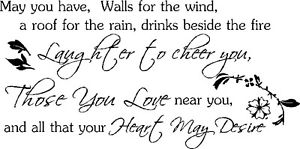 May you have, Walls for the wind,
a roof for the rain, drinks beside the fire
Laughter to cheer you,
Those You Love near you,
and all that your Heart May Desire